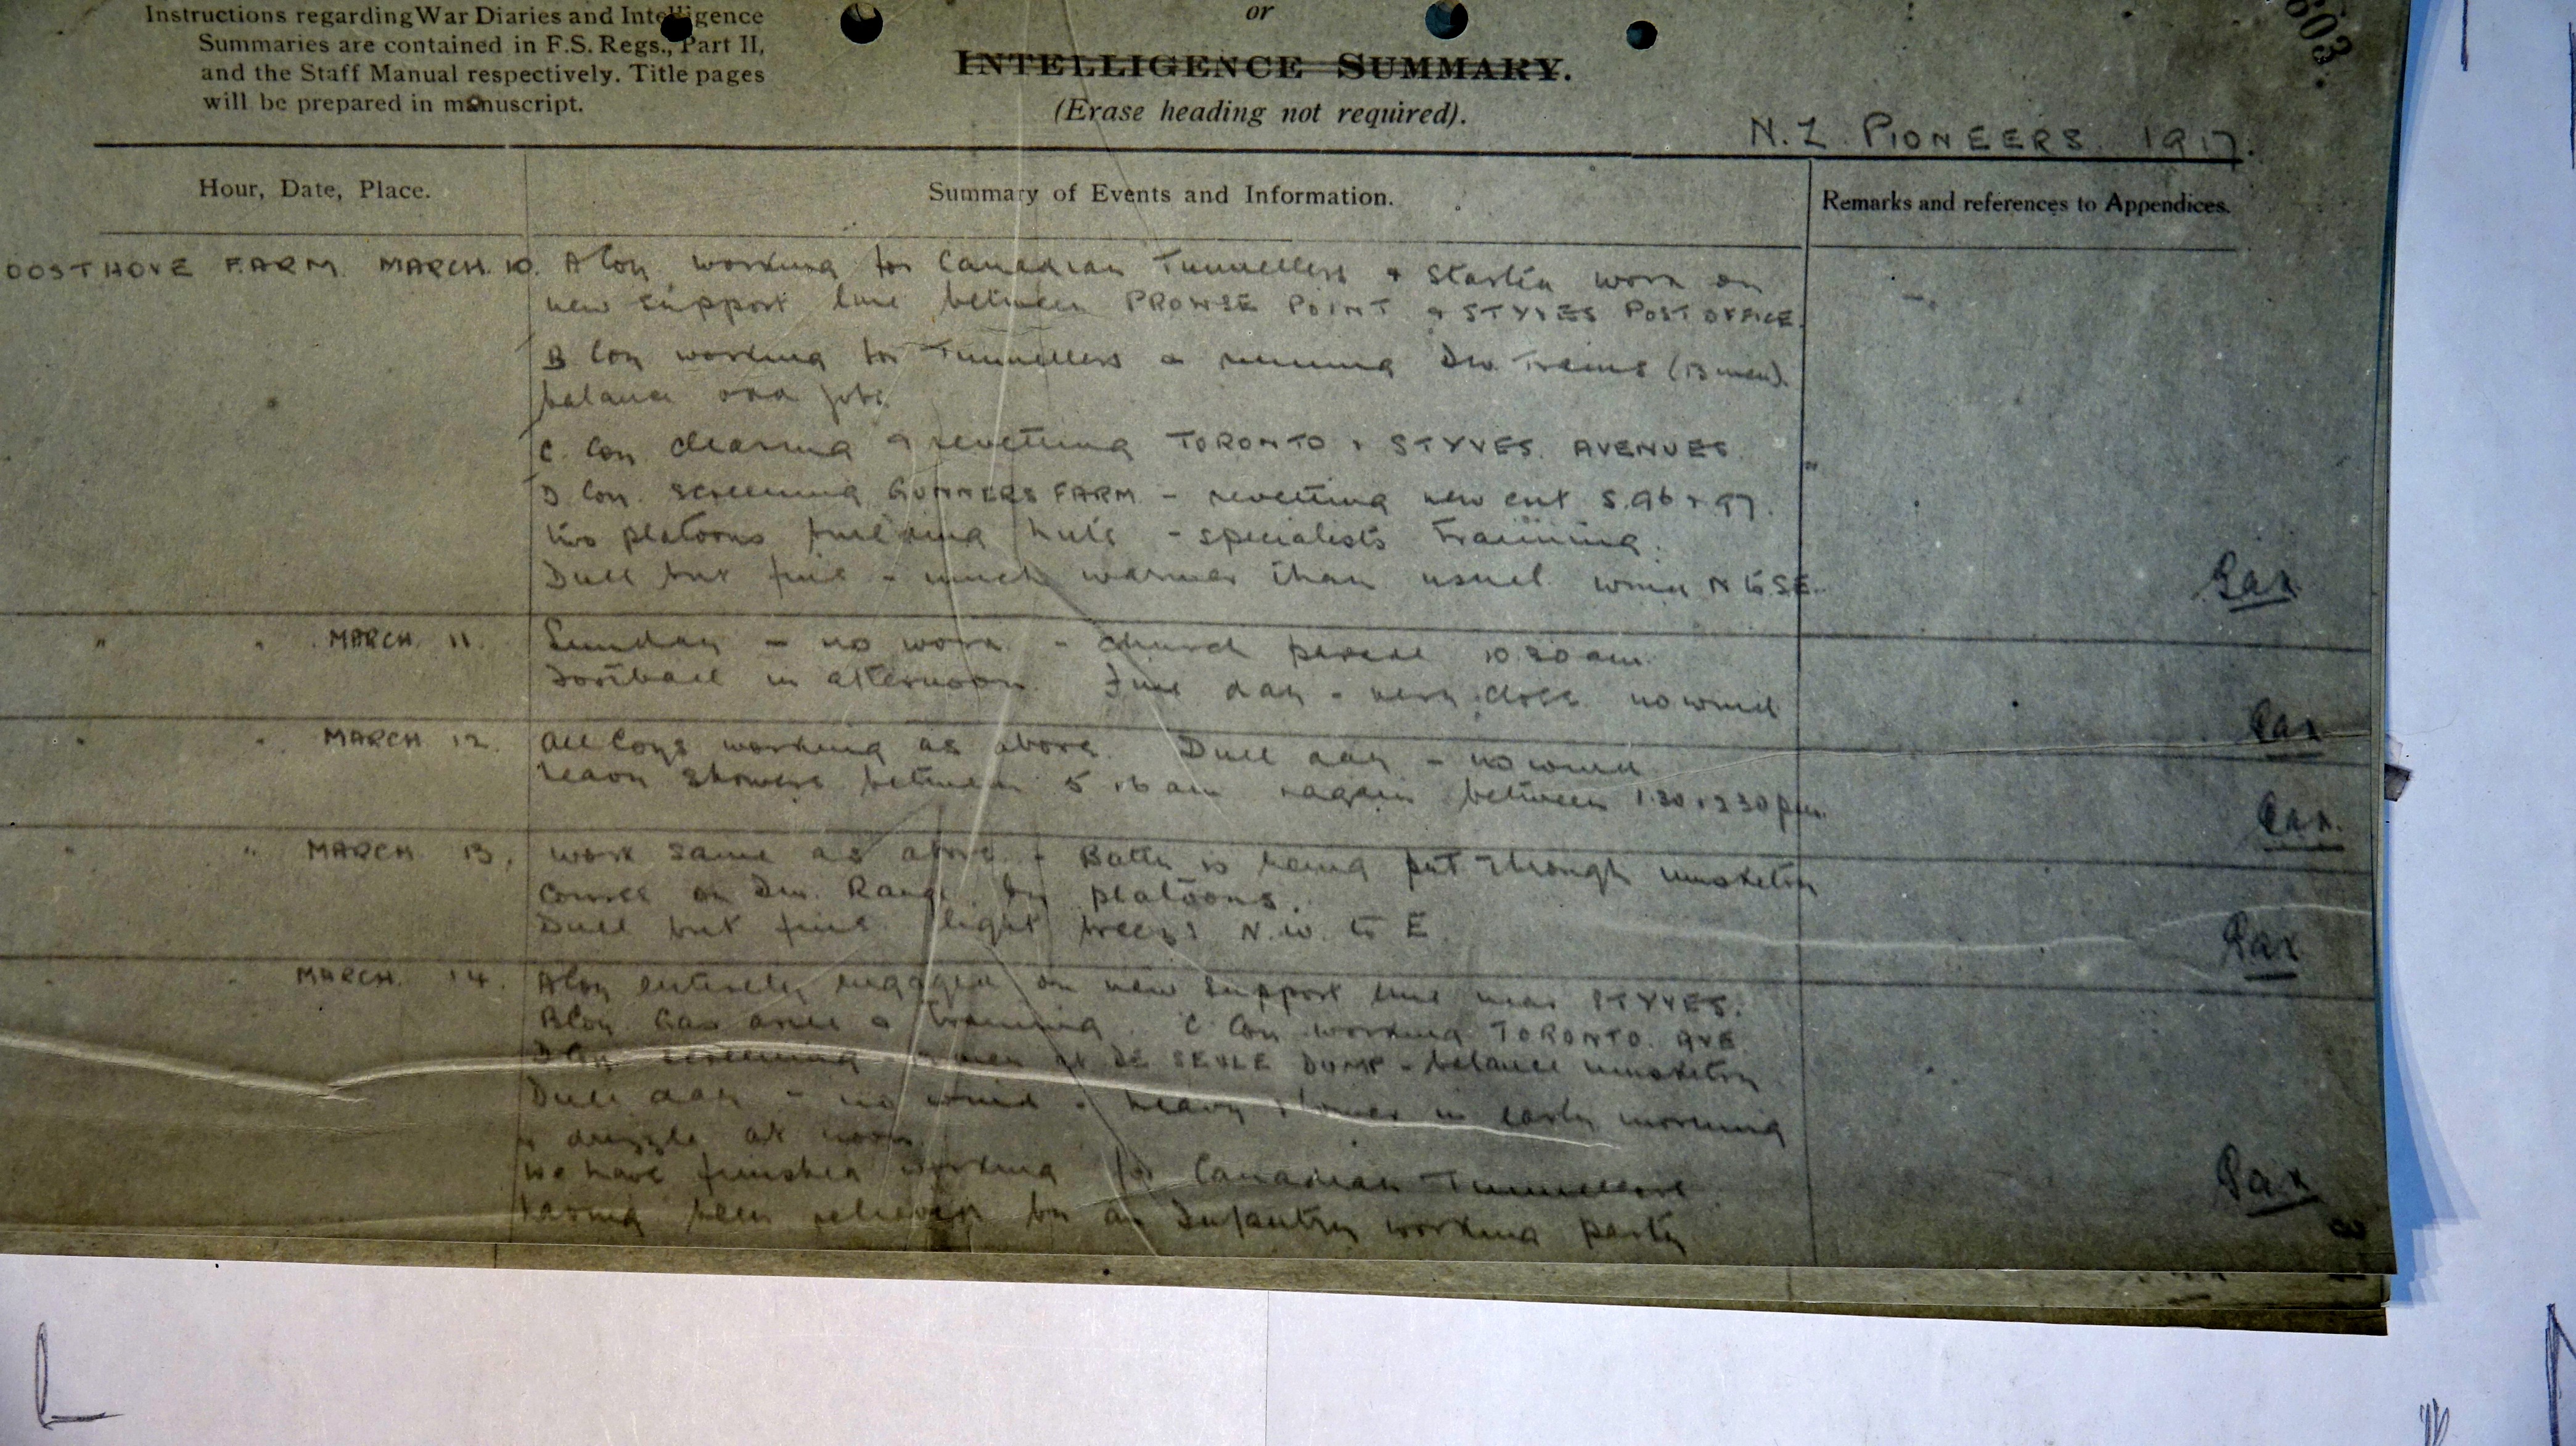 Instructions regarding War Diaries and Intelligence
Summaries are contained in F.S. Regs., Part II,
and the Staff Manual respectively. Title pages
will be prepared in manuscript.
or
INTELLIGENCE SUMMARY.
(Erase heading not required).
603.
N.Z. PIONEERS. 1917.
Hour, Date, Place.
Summary of Events and Information.
Remarks and references to Appendices.
OOSTHOVE FARM. MARCH. 10.
A Coy working for Canadian Tunnellers & started work on
new support line between PROWSE POINT & STYVES POST OFFICE.
B Coy working for Tunnellers & running Div. Trams (13 men).
balance odd jobs.
C. Coy clearing & revetting TORONTO & STYVES. AVENUES.
D Coy. screening GUNNERS FARM - revetting new cut S.96 & 97.
two platoons building huts - specialists training.
Dull but fine - much warmer than usual wind N to SE.
" " MARCH. 11.
Sunday - no work - church parade 10.30 am.
Football in afternoon. Fine day - very close no wind
" " MARCH 12.
All Coys working as above. Dull day - no wind
heavy showers between 5 & 6 am & again between 1.30 & 2.30 pm.
" " MARCH 13.
Work same as above - Battn is being put through musketry
course on Div. Range by platoons.
Dull but fine. light breeze N.W. to E.
" " MARCH. 14.
A Coy entirely engaged on new support line near STYVES.
B Coy Gas drill & training. C Coy working TORONTO. AVE.
D Coy screening men at DE SEULE DUMP - balance musketry
Dull day - no wind - heavy shower in early morning
& drizzle at noon.
We have finished working for Canadian Tunnellers
having been relieved by an Infantry working party